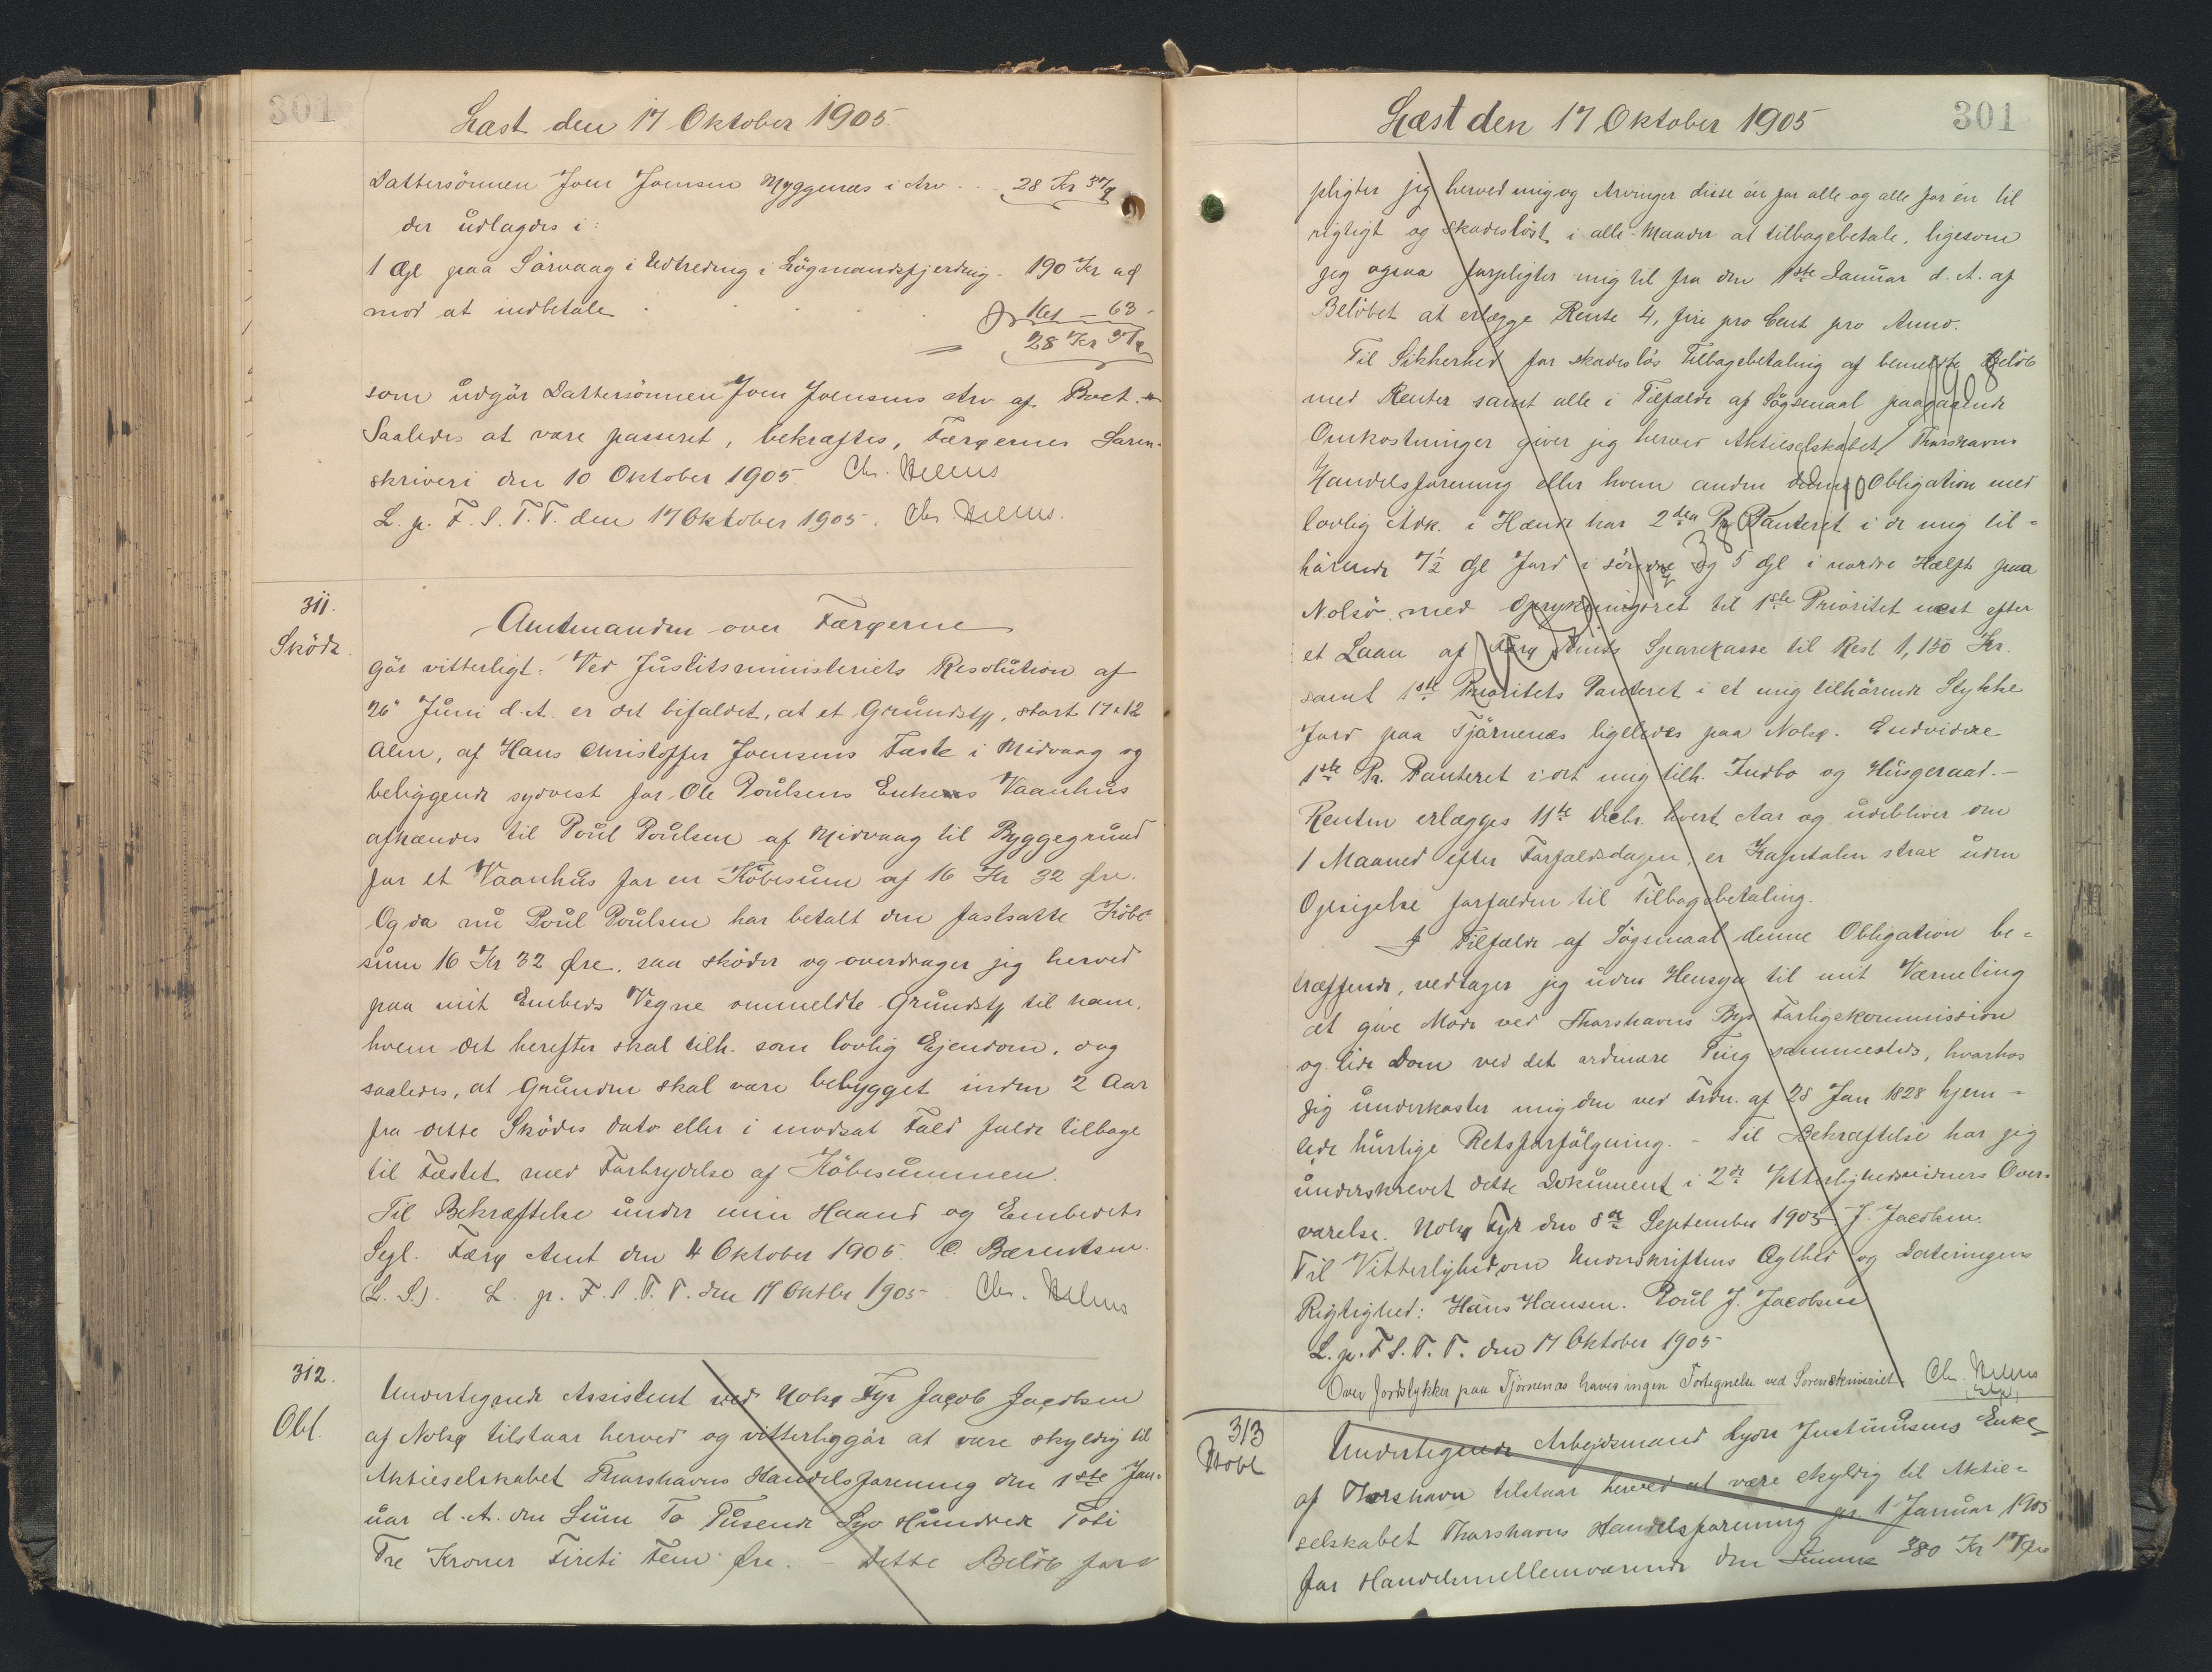 301
Læst den 17 Oktober 1905
Dattersönnen Joen Joensen Myggenæs i Arv . . 28 Kr 37
der udlagdes i:
1 Gl paa Sörvaag i Udtreding i Lögmandsfjerding - 190 Kr
mod at indbetale . . . . 63
28 Kr 37
som udgör Dattersönnen Joen Joensens Arv af Boet.
Saaledes at være passeret, bekræftes, Færøernes Soren-
skriveri den 10 Oktober 1905. Chr. Nelms
L. p. F. S. T. T. den 17 Oktober 1905. Chr. Nelms.
311.
Sköde.
Amtmanden over Færøerne
gör vitterligt: Ved Justitsministeriets Resolution af
26' Juni d. A. er det bifaldet, at et Grundst, stort 17 x 12
Alen, af Hans Christoffer Joensens Fæste i Midvaag og
beliggende sydvest for Ole Poulsens Enkes Vaanhus
afhændes til Poul Poulsen af Midvaag til Byggegrund
for et Vaanhus for en Köbesum af 16 Kr 32 Øre.
Og da nu Poul Poulsen har betalt den fastsatte Köbe
sum 16 Kr 32 Øre, saa sköder og overdrager jeg herved
paa mit Embeds Vegne ommeldte Grundst til ham,
hvem det herefter skal tilh. som lovlig Ejendom, dog
saaledes, at Grunden skal være bebygget inden 2 Aar
fra dette Sködes Dato eller i modsat Fald falde tilbage
til Fæstet med Forbrydelse af Köbesummen.
Til Bekræftelse under min Haand og Embedets
Segl. Færø Amt den 4 Oktober 1905. C. Bærentsen.
(L. S.). L. p. F. S. T. T. den 17 Oktbr 1905. Chr. Nelms
312.
Obl.
Undertegnede Assistent ved Nolsø Fyr Jacob Jacobsen
af Nolsø tilstaar herved og vitterliggör at være skyldig til
Aktieselskabet Thorshavns Handelsforening den 1ste Jan-
uar d. A. den Sum To Tusende Syv Hundrede Toti
Tre Kroner Fireti Fem Øre. - Dette Belöb for
Læst den 17 Oktober 1905
301
pligter jeg herved mig og Arvinger disse én for alle og alle for én til
rigtigt og skadeslöst i alle Maader at tilbagebetale, ligesom
jeg ogsaa forpligter mig til fra den 1ste Januar d. A. af
Belöbet at erlægge Rente 4, fire pro Cent pro Anno.
Til Sikkerhed for skadeslös Tilbagebetaling af bemeldte Belöb
med Renter samt alle i Tilfælde af Sögsmaal paagagende
Omkostninger giver jeg herved Aktieselskabet Thorshavns
Handelsforening eller hvem anden denne Obligation med
lovlig Adk. i Hænde har 2den Pr. Panteret i de mig til-
hörende 7½ Gl Jord i söndre og 5 Gl i nordre Hælft paa
Nolsö med Oprykningsret til 1ste Prioritet næst efter
et Laan af Færø Amts Sparekasse til Rest 1,150 Kr.
samt 1ste Prioritets Panteret i et mig tilhörende Stykke
Jord paa Tjörnenæs ligeledes paa Nolsø. Endvidere
1ste Pr. Panteret i det mig tilh. Indbo og Husgeraad. -
Renten erlægges 11te Decbr. hvert Aar og udebliver den
1 Maaned efter Forfaldsdagen, er Kapitalen strax uden
Opsigelse forfalden til Tilbagebetaling.
I Tilfælde af Sögsmaal denne Obligation be-
træffende, vedtager jeg uden Hensyn til mit Værneting
at give Möde ved Thorshavns Bys Forligskommission
og lide Dom ved det ordinære Ting sammesteds, hvorhos
jeg underkaster mig den ved Frdn. af 28 Jan 1828 hjem-
lede hurtige Retsforfölgning. - Til Bekræftelse har jeg
underskrevet dette Dokument i 2de Vitterlighedsvidners Over-
værelse. Nolsø Fyr den 8de September 1905 J. Jacobsen.
Til Vitterlighed om Underskriftens Ægthed og Dateringens
Rigtighed: Hans Hansen. Poul J. Jacobsen
L. p. F. S. T. T. den 17 Oktober 1905
Over Jordstykker paa Tjörnenæs haves ingen Fortegnelse ved Sorenskriveriet. Chr. Nelms
313
Undertegnede Arbejdsmand Lyder Justinusens Enke
af Thorshavn tilstaar herved at være skyldig til Aktie-
selskabet Thorshavns Handelsforening pr. 1 Januar 1905
for Handelsmellemværende den Summa 380 Kr 17 Øre